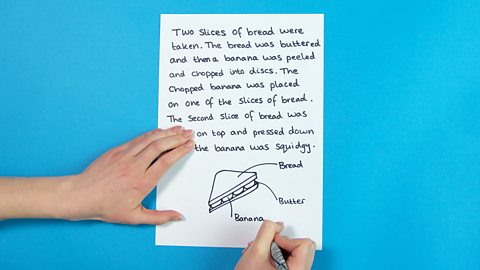 Two slices of bread were
taken. The bread was buttered
and then a banana was peeled
and chopped into discs. The
Chopped banana was placed
on one of the slices of bread.
The Second slice of bread was
on top and pressed down
the banana was squidgy.
Bread
Butter
Banana